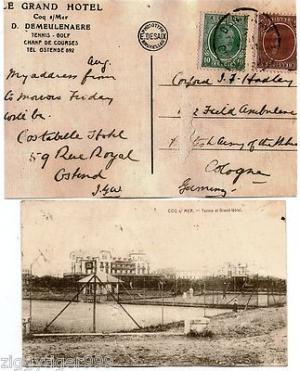 LE GRAND HOTEL
Coq s/Mer
D. DEMEULENAERE
TENNIS - GOLF
CHAMP DE COURSES
TEL OSTENDE 892
E. DESAIX
BRUXELLES
10
Aug.
My address from
to morrow Friday
will be.
Costabelle Hotel
59 Rue Royal
Ostend
J.G.W
Corporal J. F. Hadley
Field Ambulance
Army of the Rhine
Cologne
Germany
COQ s/ MER. — Tennis et Grand Hôtel.
ziggytiger999